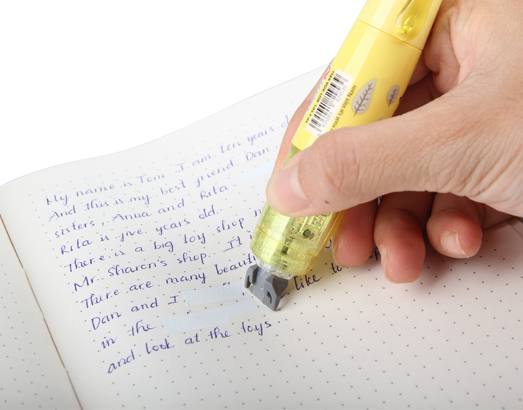 My name is Toni. I am ten years old
And this is my best friend Dan
sisters, Anna and Rita.
Rita is five years old.
There is a big toy shop
Mr. Sharon's shop. It
There are many beauti
Dan and I like to
in the
and look at the toys